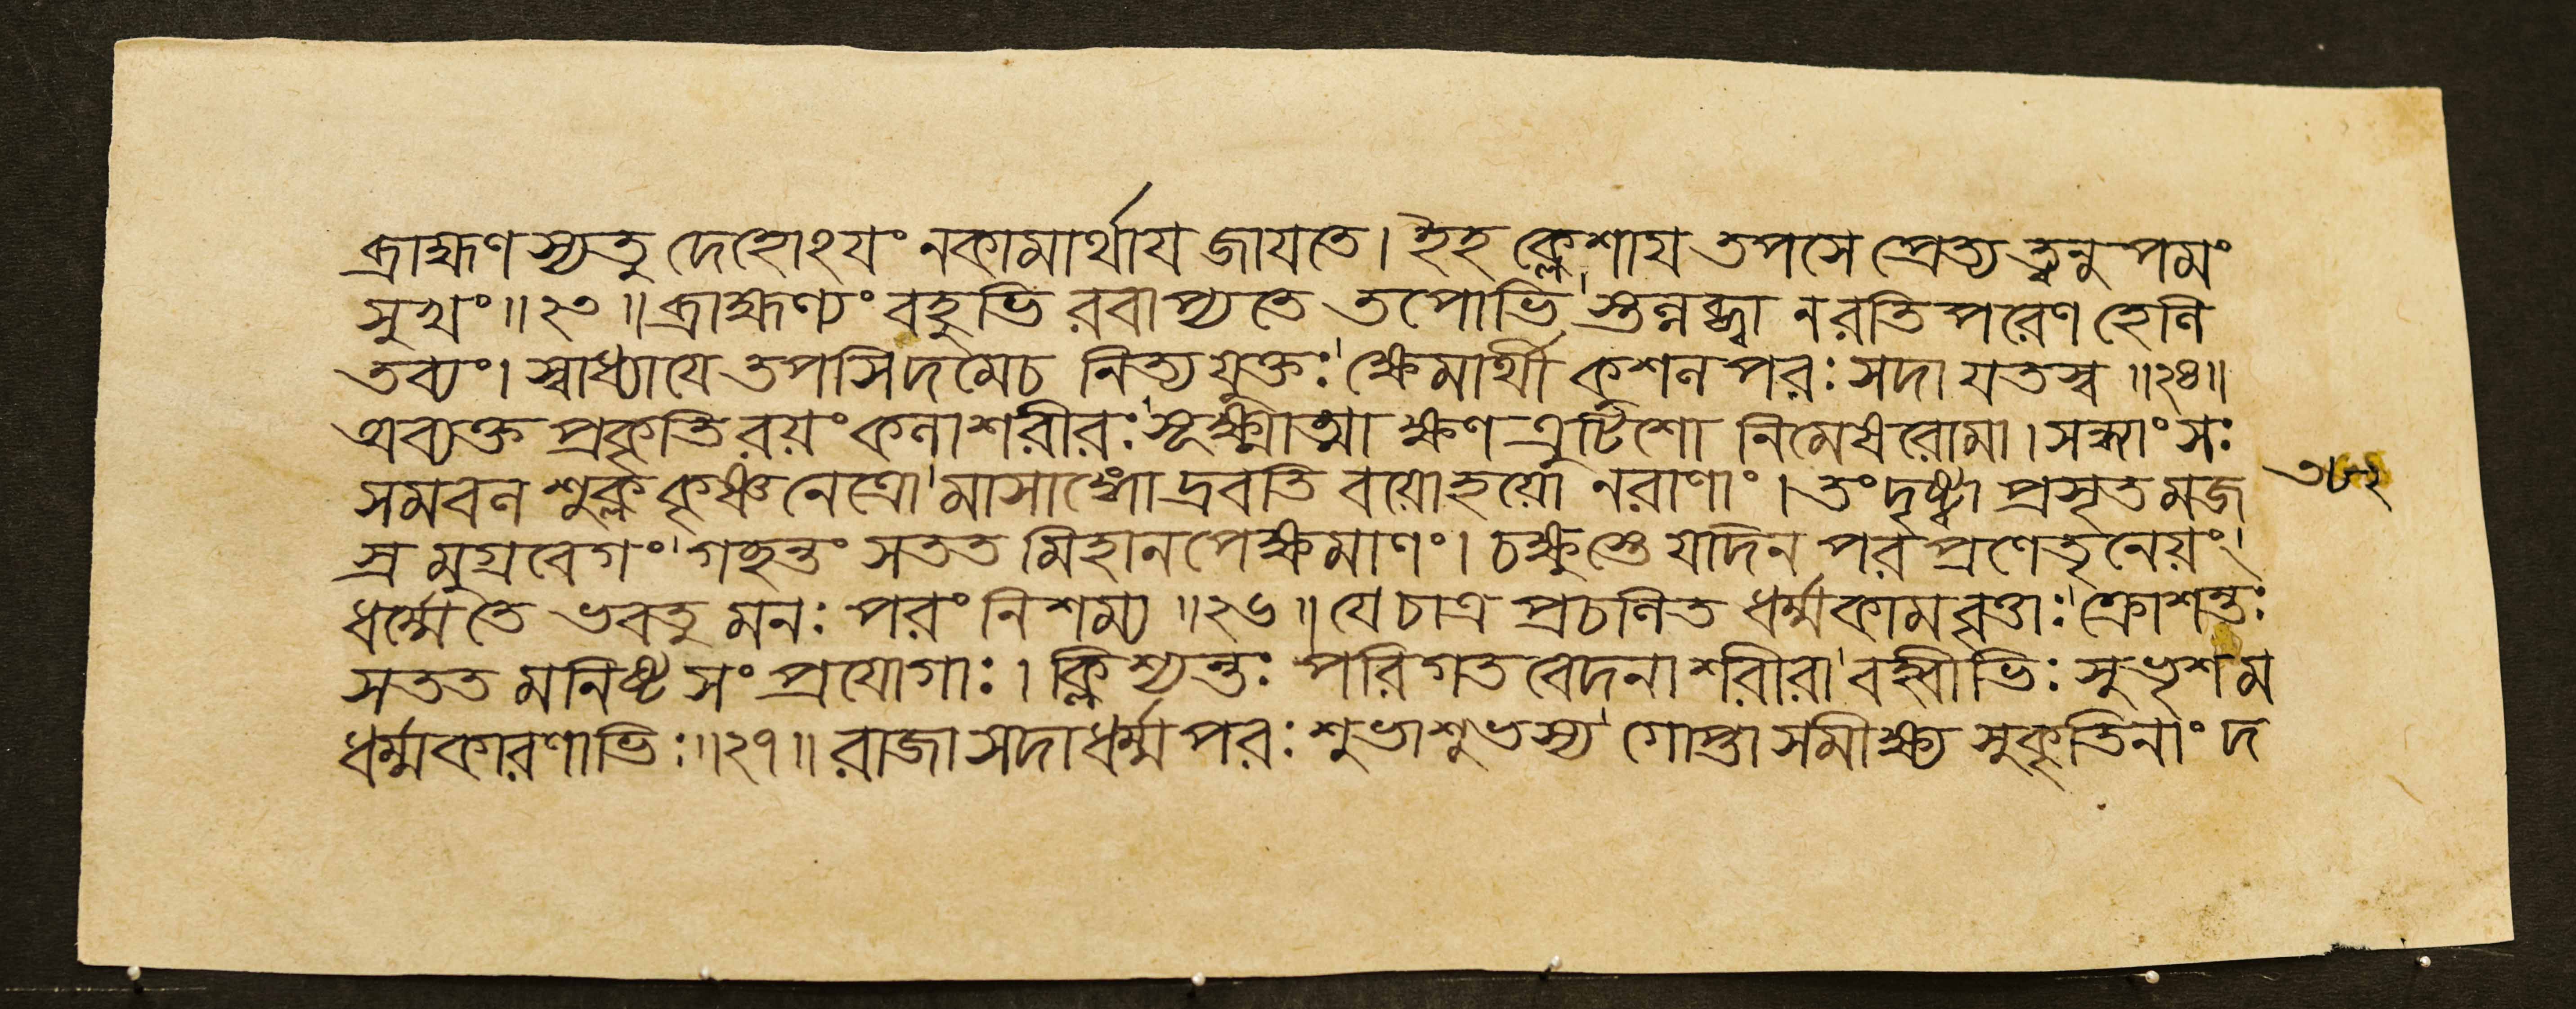 ব্রাহ্মণস্যতু দেহোঽযং নকামার্থায জাযতে। ইহ ক্লেশায তপসে প্রেত্য ত্বনুপমং
সুখং॥২৩॥ব্রাহ্মণ্যং বহুভি রবাপ্যতে তপোভি'স্তন্নব্ধ্বা নরতিপরেণ হেনি
তব্যং। স্বাধ্যাযে তপসিদমেচ নিত্যযুক্তঃ'ক্ষেমার্থী কুশনপরঃ সদা যতস্ব ॥২৪॥
অব্যক্ত প্রকৃতিরয়ং কনাশরীরঃ'সূক্ষ্মাত্মা ক্ষণত্রুটিশো নিমেষরোমা। সন্ধ্যাংসঃ
সমবন শুক্ল কৃষ্ণনেত্রো'মাসাঙ্গো দ্রবতি বয়োহয়ো নরাণাং। তংদৃষ্ট্বা প্রসৃতমজ
৩৮২
স্র মুগ্রবেগং'গচ্ছন্তং সততমিহানপেক্ষমাণং। চক্ষুস্তে যদিন পরপ্রণেতৃনেয়ং'
ধর্ম্মেতে ভবতু মনঃ পরং নিশম্য॥২৬॥যেচাত্র প্রচনিত ধর্ম্মকামবৃত্তাঃ'ক্রোশন্তঃ
সততমনিষ্ট সংপ্রযোগাঃ। ক্লিশ্যন্তঃ পরিগত বেদনাশরীরা'বহ্বীভিঃ সুভৃশম
ধর্ম্মকারণাভিঃ॥২৭॥রাজা সদাধর্ম্মপরঃ শুভাশুভস্য'গোপ্তা সমীক্ষ্য সুকৃতিনাং দ